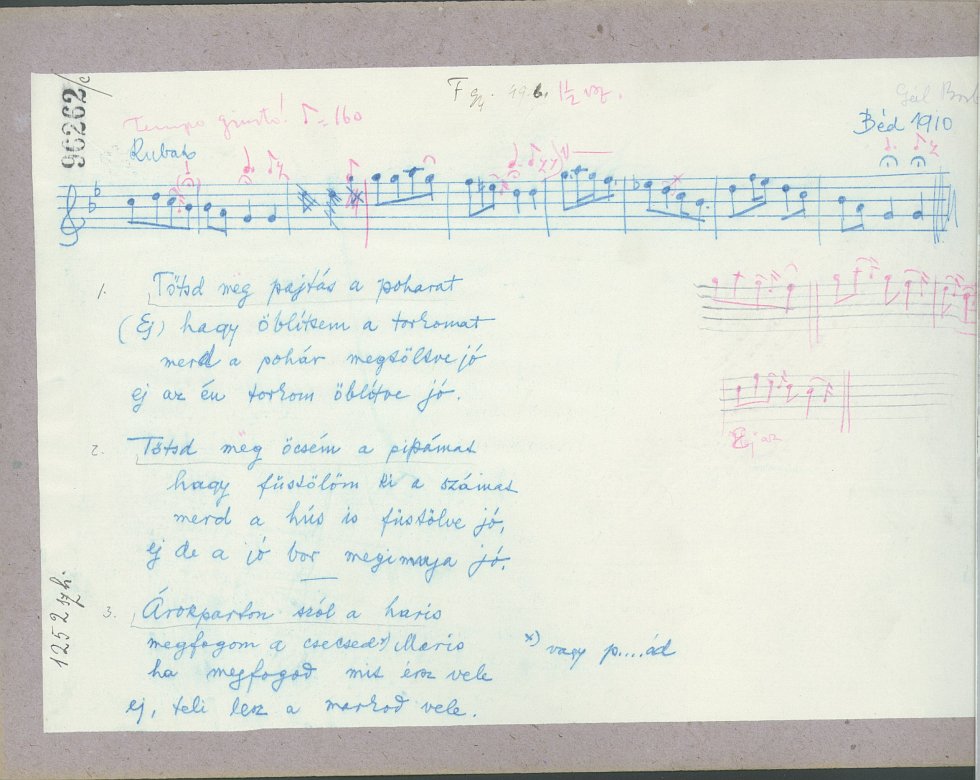 96262/c
Tempo giusto! ♪=160
Rubato
1½ vsz.
Gál
Béd 1910
1. Töltsd még pajtás a poharat
(Ej) hagy öblítsem a torkomat
merd a pohár megtöltve jó
ej az én torkom öblítve jó.
2. Töltsd még öcsém a pipámat
hagy füstölöm ki a számat
merd a hús is füstölve jó,
ej de a jó bor megimmya jó.
3. Árokparton szól a haris
megfogom a csecsed x) Maris
x) vagy p....ád
ha megfogod mit érsz vele
ej, teli lesz a markod vele.
Ej az
1252 lzh.